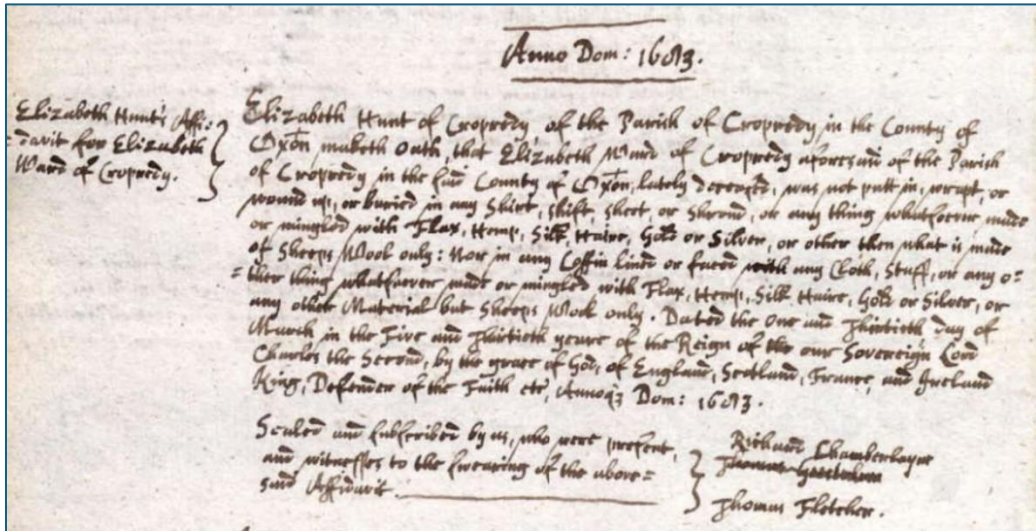 Anno Dom: 1683.
Elizabeth Hunt's Affi:
davit for Elizabeth
Ward of Cropredy.
Elizabeth Hunt of Cropredy of the Parish of Cropredy, in the County of
Oxōn maketh Oath, that Elizabeth Ward of Cropredy aforesaid of the Parish
of Cropredy in the said County of Oxōn, lately deceased, was not putt in, wrapt, or
wound up, or buried in any Shirt, shift, sheet, or Shroud, or any thing whatsoever made
or mingled with Flax, Hemp, Silk, Haire, Gold or Silver, or other then what is made
of Sheeps Wool only: Nor in any Coffin lined or faced with any Cloth, Stuff, or any o=
=ther thing whatsoever made or mingled with Flax, Hemp, Silk, Haire, Gold or Silver, or
any other Material but Sheeps Wool only. Dated the One and Thirtieth day of
March in the Five and Thirtieth yeare of the Reign of the our Sovereign Lord
Charles the Second, by the grace of God, of England, Scotland, France, and Ireland
King, Defender of the Faith etc, Annoq; Dom: 1683.
Sealed and subscribed by us, who were present,
and witnesses to the swearing of the above=
said Affidavit.
Richard Chamberlayne
Thomas
Thomas Fletcher.